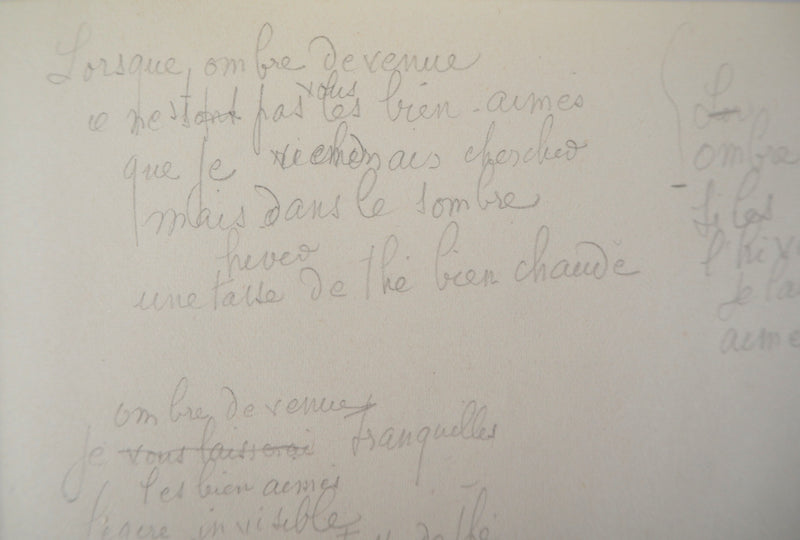 Lorsque, ombre devenue
ce ne sont pas vous les bien-aimés
que je viendrais chercher
mais dans le sombre
hiver
une tasse de thé bien chaude
ombre devenue
Je vous laisserai tranquilles
les bien aimés
légère invisible
ombre
Si les
l'hiv
Je
aimé